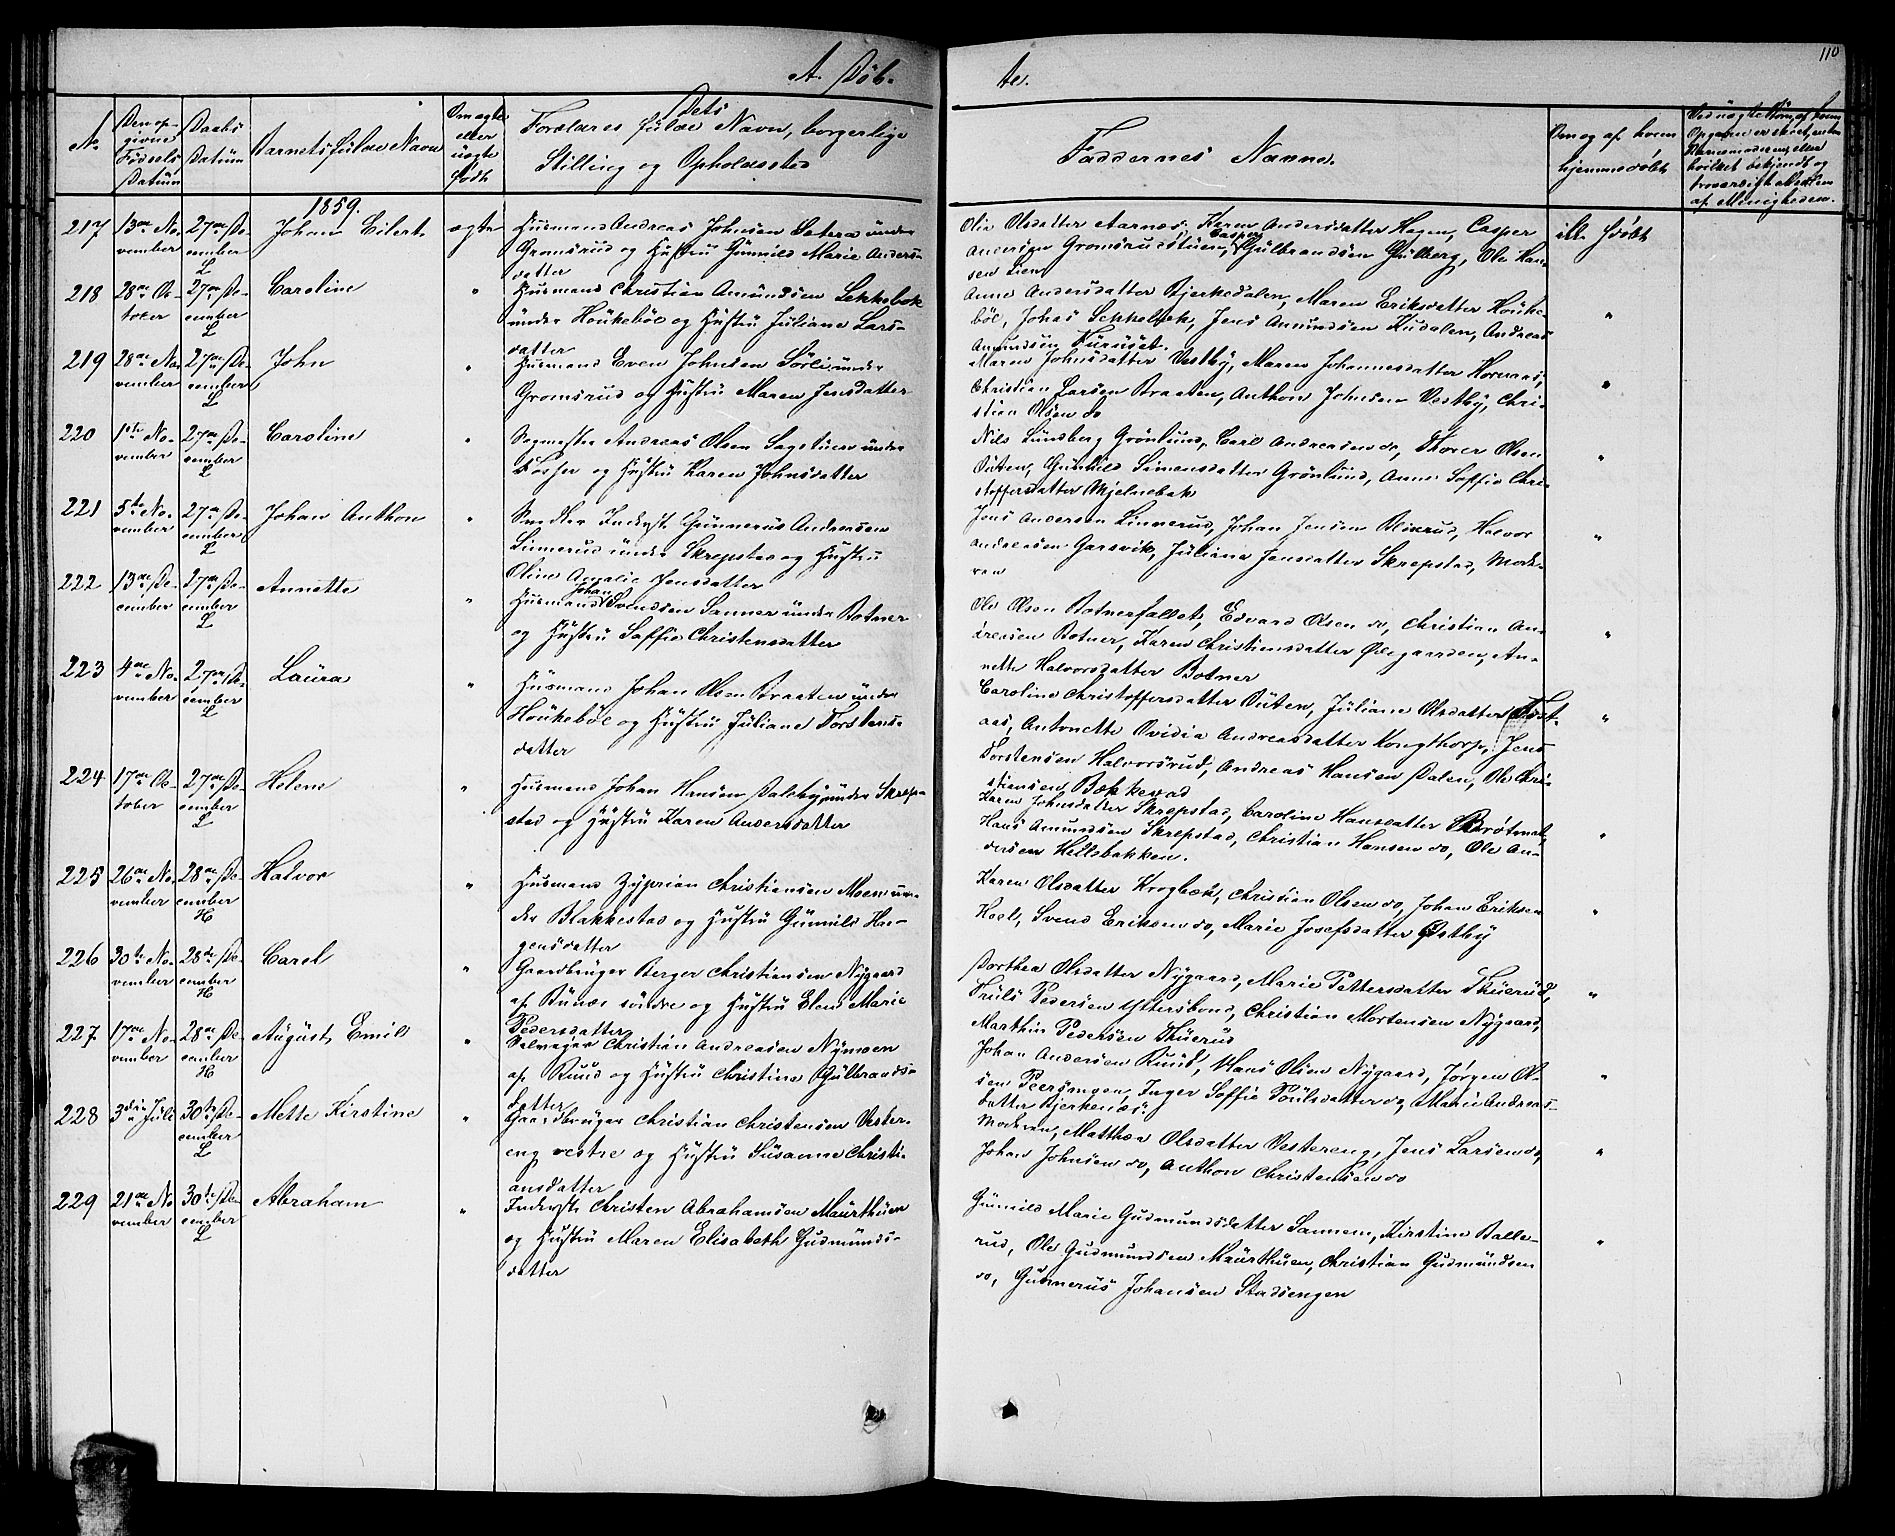 A. Døb-
te.
110
No
Den op-
givne
Fødsels
Datum
Daabs
Datum
Barnets fulde Navn
Om ægte
eller
uægte
født
Dets
Forældres fulde Navn, borgerlige
Stilling og Opholdssted
Faddernes Navne.
Om og af hvem
hjemmedøbt
1859.
217
13de No-
vember
27de De-
cember
L
Johan Eilert
ægte
Husmand Andreas Johnsen Setera under
Gromsrud og Hustru Gunnild Marie Anders-
datter
Olia Olsdatter Aarnæs, Karen Andersdatter Hagen, Casper
Andersen Gromsrudstuen, Casper Gulbrandsen Gulberg, Ole Han-
sen Lien
ikke hdøbt
218
28de Oc-
tober
27de De-
cember
L
Caroline
"
Husmand Christian Amundsen Sekkebæk
under Houkebøl og Hustru Juliane Lars-
datter
Anne Andersdatter Bjerkedalen, Maren Eriksdatter Houke-
bøl, Johas Sekkebæk, Jens Amundsen Kudalen, Andreas
Amundsen Furuset.
"
219
28de No-
vember
27de De-
cember
L
John
"
Husmand Even Johnsen Sørli under
Gromsrud og Hustru Maren Jensdatter
Maren Johnsdatter Vestby, Maren Johannesdatter Hornaas,
Christian Larsen Braaten, Anthon Johnsen Vestby, Chri-
stian Olsen do
"
220
1ste No-
vember
27de De-
cember
L
Caroline
"
Sagmester Andreas Olsen Sagstuen under
Bøhler og Hustru Karen Johnsdatter
Nils Lundberg Grønlund, Carl Andreasen do, Thorer Olsen
Duten, Gunhild Simensdatter Grønlund, Anne Soffie Chri-
stoffersdatter Mjelnebak
"
221
5te No-
vember
27de De-
cember
L
Johan Anthon
"
Snedker Inderst Gunnerus Andersen
Linnerud under Skrepstad og Hustru
Oline Amalie Jensdatter
Jens Andersen Linnerud, Johan Jensen Blixrud, Halvor
Andreasen Garsvik, Juliane Jensdatter Skrepstad, Mode-
ren
"
222
13de De-
cember
27de De-
cember
L
Annette
"
Husmand Johan Svendsen Sanner under Botner
og Hustru Soffie Christensdatter
Ole Olsen Botnerfallet, Edvard Olsen do, Christian An-
dreasen Botner, Karen Christiensdatter Ødegaarden, An-
nette Halvorsdatter Botner
"
223
4de No-
vember
27de De-
cember
L
Laura
"
Husmand Johan Olsen Braaten under
Houkebøl og Hustru Juliane Torstens-
datter
Caroline Christoffersdatter Duten, Juliane Olsdatter Tost-
aas, Antonette Ovidia Andreasdatter Kongthorp, Jens
Torstensen Halvorsrud, Andreas Hansen Dalen, Ole Chri-
stiansen Bækkevad
"
224
17de Oc-
tober
27de De-
cember
L
Helene
"
Husmand Johan Hansen Dalsby under Skrep-
stad og Hustru Karen Andersdatter
Karen Johnsdatter Skrepstad, Caroline Hansdatter Brøtmet,
Hans Amundsen Skrepstad, Christian Hansen do, Ole An-
dersen Hellebakken.
"
225
26de No-
vember
28de De-
cember
H
Halvor
"
Husmand Zyprian Christiansen Moen un-
der Blakkestad og Hustru Gunnild Ha-
gensdatter
Karen Olsdatter Krogbæk, Christian Olsen do, Johan Eriksen
Hoel, Svend Eriksen do, Marie Josefsdatter Østby
"
226
30te No-
vember
28de De-
cember
H
Carel
"
Gaardbruger Berger Christiansen Nygaard
af Bunæs søndre og Hustru Elen Marie
Pedersdatter
Dorthea Olsdatter Nygaard, Marie Pettersdatter Thuerud,
Truls Pedersen Yttersbond, Christian Mortensen Nygaard,
Marthin Pedersen Thuerud
"
227
17de No-
vember
28de De-
cember
H
August Emil
"
Selveier Christian Andreasen Nymoen
af Ruud og Hustru Christine Gulbrands-
datter
Johan Andersen Ruud, Hans Olsen Nygaard, Jørgen Ol-
sen Peersengen, Inger Soffie Poulsdatter do, Marie Andreas-
datter Bjerkenæs.
"
228
3die Juli
30te De-
cember
L
Mette Kirstine
"
Gaardbruger Christian Christensen Vester-
eng vestre og Hustru Susanne Christi-
ansdatter
Moderen, Matthea Olsdatter Vestereng, Jens Larsen do,
Johan Johnsen do, Anthon Christensen do
"
229
21de No-
vember
30te De-
cember
L
Abraham
"
Inderst Christen Abrahamsen Maurthuen
og Hustru Maren Elisabeth Gudmunds-
datter
Gunnild Marie Gudmundsdatter Sannem, Kirstine Balle-
rud, Ole Gudmundsen Maurthuen, Christian Gudmundsen
do, Gunnerus Johansen Stadsengen
"